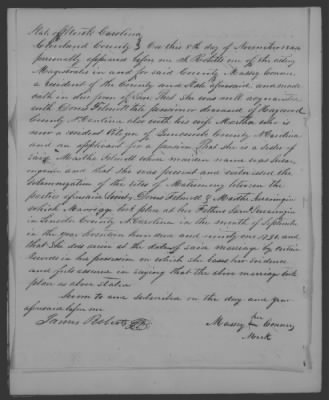 State of North Carolina
Cleveland County } On this 5th day of November 1844
personally appeared before me Roberts one of the acting
Magistrates in and for said County Massey Connor
a resident of the County and State aforesaid and made
oath in due form of law That She was well acquainted
with Felmett late pensioner deceased of Haywood
County N Carolina also with his wife Martha who is
now a resident Citizen of County N Carolina
and an applicant for a pension That she is a sister of
said Martha Felmett whose maiden name was
and that she was present and witnessed the
solemnization of the rites of Matrimony between the
parties aforesaid Felmett & Martha
which marriage took place at her Fathers
in Lincoln County N Carolina in the month of September
in the year Seventeen hundred and ninety one 1791 and
that She was at the date of said marriage by
Records in his possession on which she bases her evidence
and feels assured in saying that the above marriage took
place as above stated
Sworn to and subscribed on the day and year
aforesaid before me
James Roberts JP
Massey her Connor
Mark